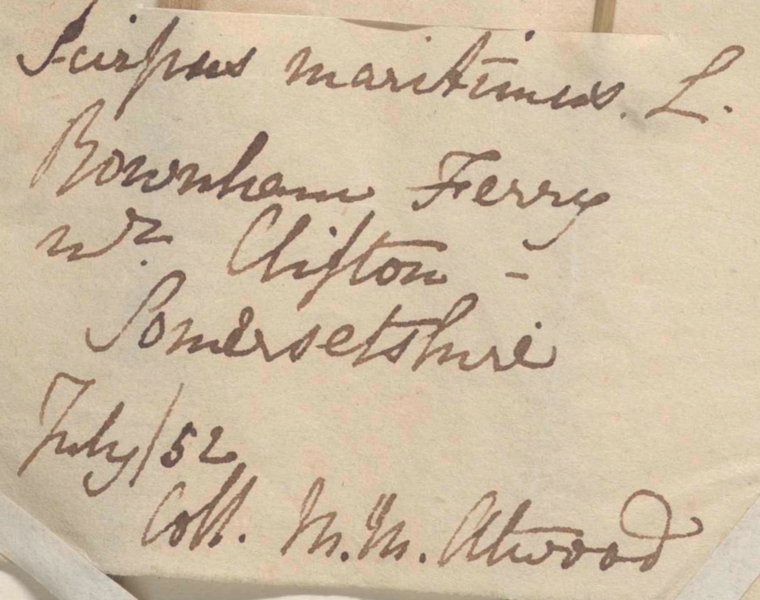 Scirpus maritimus. L.
Bownham Ferry
nr. Clifton -
Somersetshire
July/52
Coll. M.M. Atwood